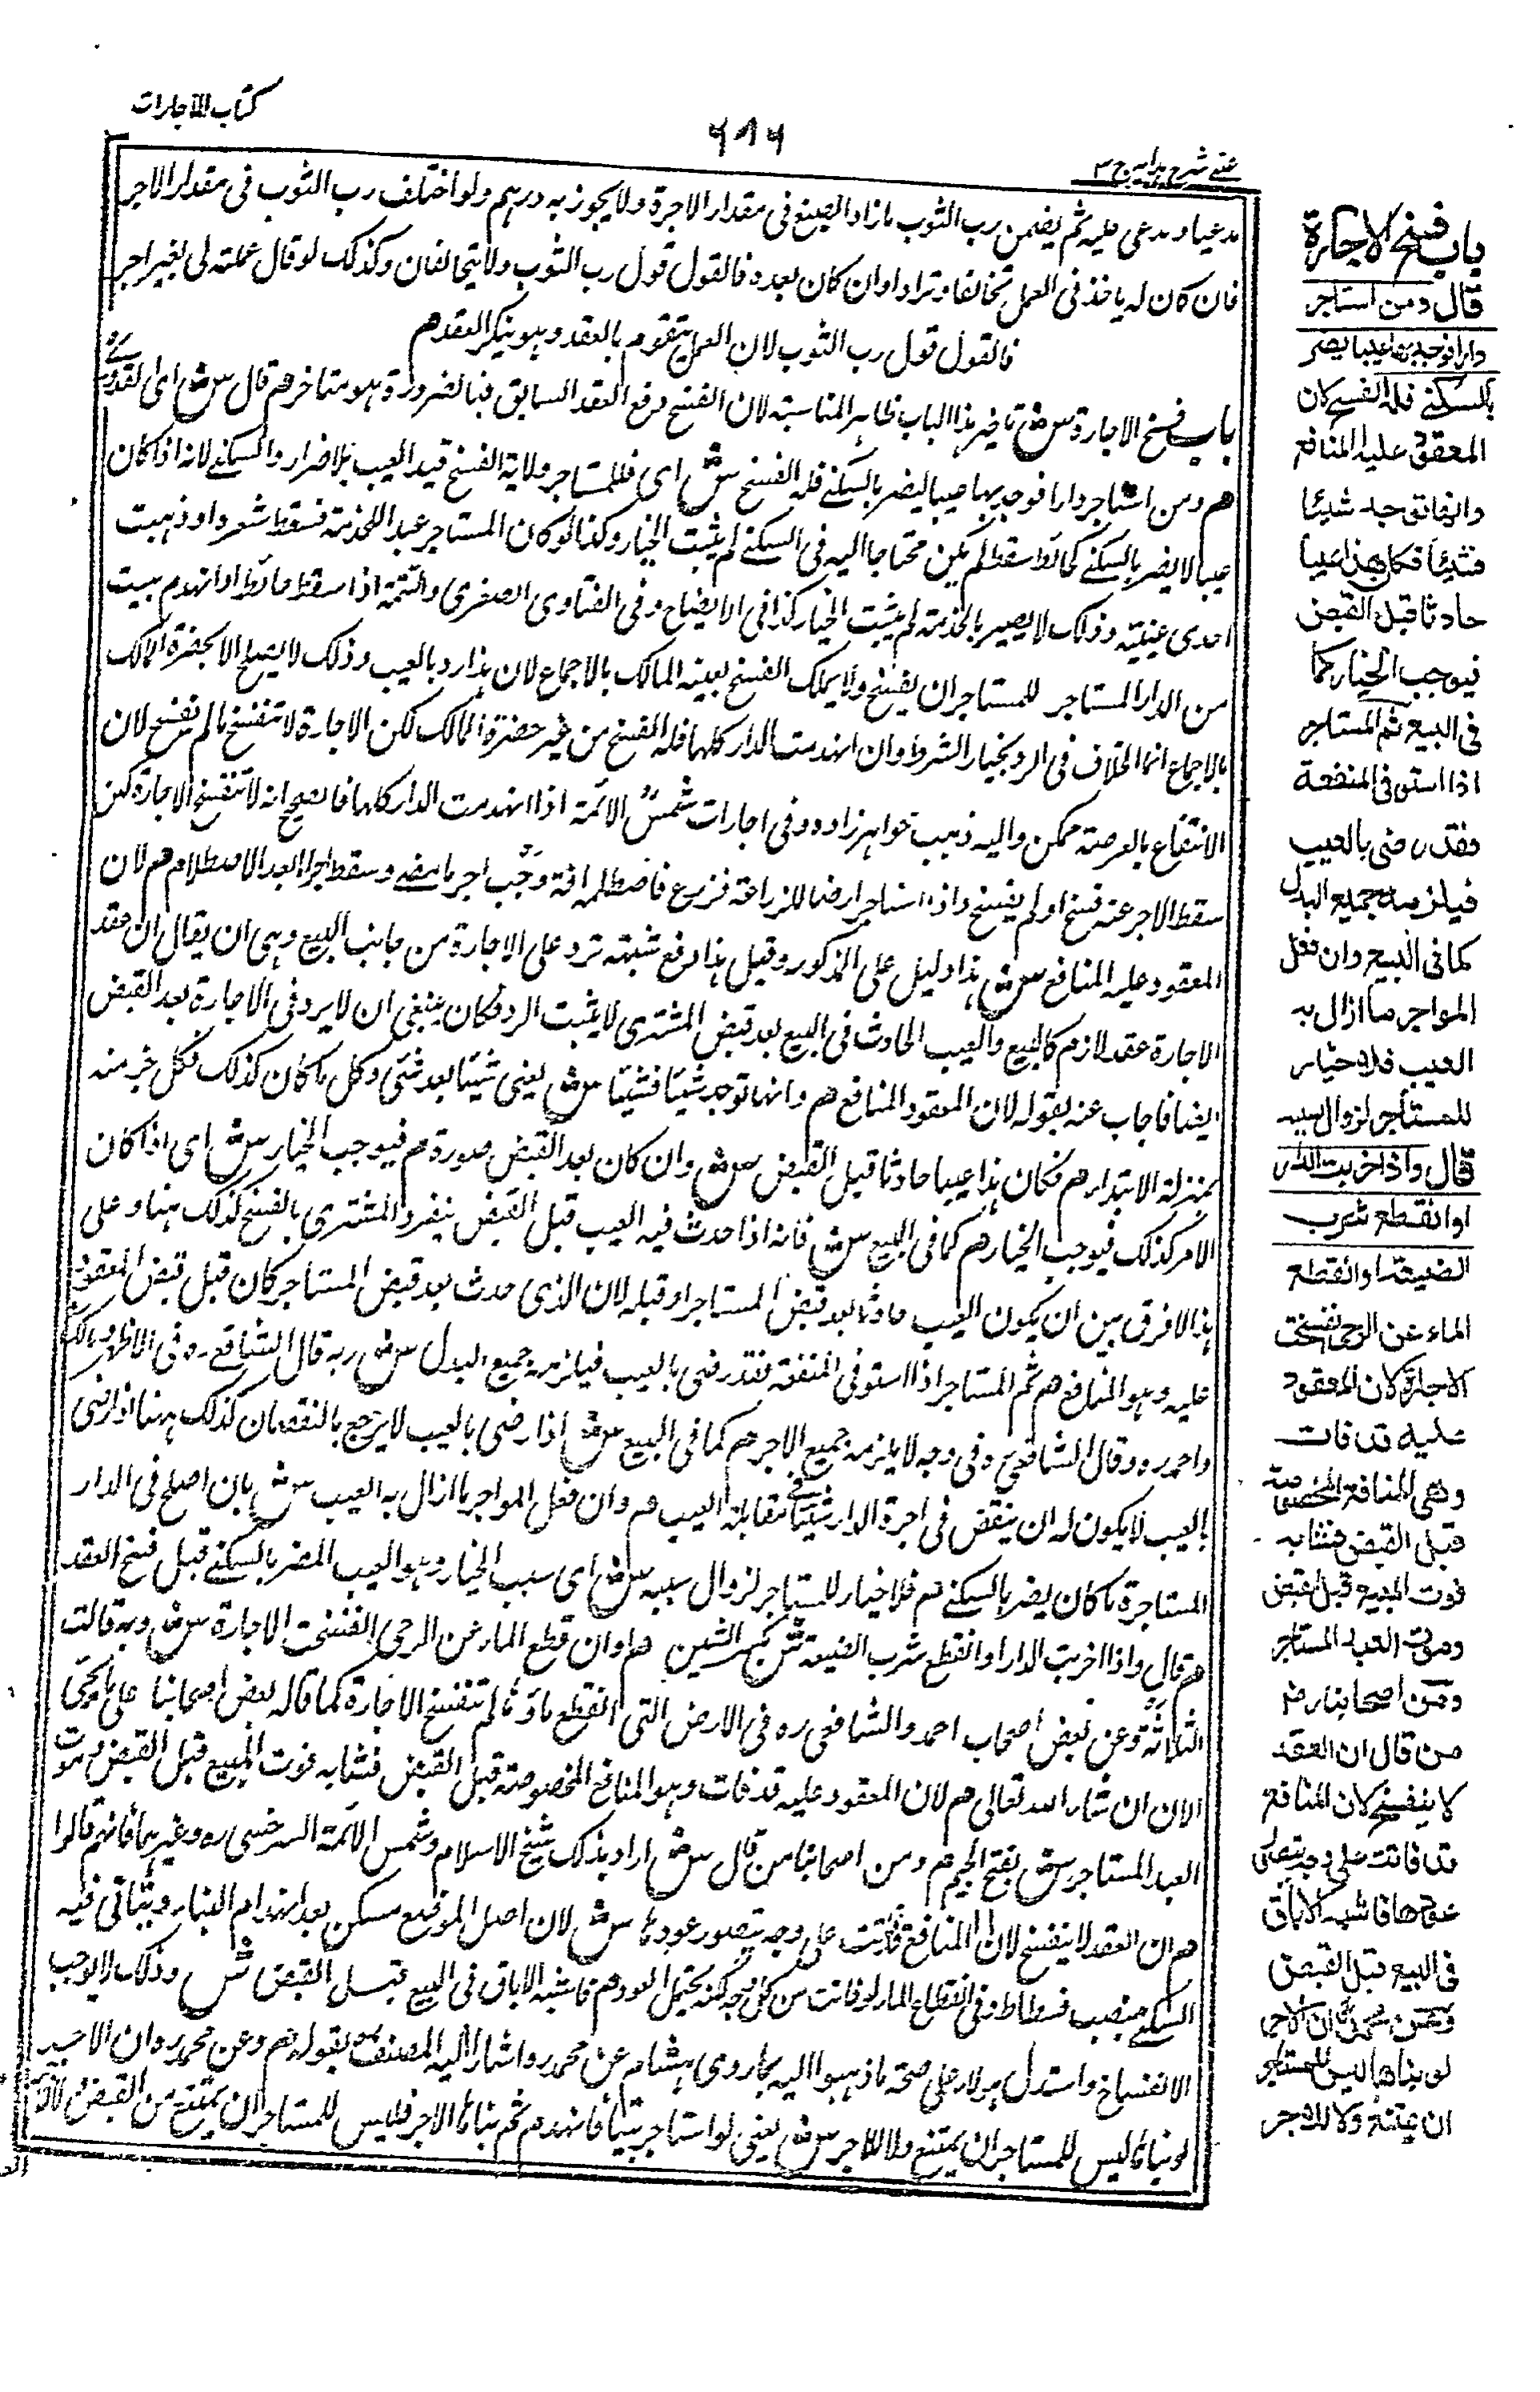 كتاب الاجارات
٦٨٦
عينى شرح هدايه ج ٣
مدعيا ومدعى عليه ثم يضمن رب الثوب ما زاد الصبغ فى مقدار الاجرة ولا يجوز به درهم ولو اختلف رب الثوب فى مقدار الاجر
فان كان له ياخذ فى العمل تحالفا وترادا وان كان بعده فالقول قول رب الثوب ولا يتحالفان وكذلك لو قال عملته لى بغير اجر
فالقول قول رب الثوب لان العمل يتقوم بالعقد وهو ينكر العقد هم
باب فسخ الاجارة ش تاخير هذا الباب ظاهر المناسبة لان الفسخ رفع العقد السابق فبالضرورة هو متاخر هم قال ش اى القدورى
هم ومن استاجر دارا فوجد بها عيبا يضر بالسكنى فله الفسخ ش اى فللمستاجر ولاية الفسخ قيد العيب بالاضرار والسكنى لانه اذا كان
عيبا لا يضر بالسكنى كحائط سقط لم يكن محتاجا اليه فى السكنى لم يثبت الخيار وكذا لو كان المستاجر عبدا للخدمة فسقط شعره او ذهبت
احدى عينيه وذلك لا يضر بالخدمة لم يثبت الخيار كذا فى الايضاح وفى الفتاوى الصغرى والتتمة اذا سقط حائط او انهدم بيت
من الدار المستاجر للمستاجر ان يفسخ ولا يملك الفسخ بغيبة المالك بالاجماع لان هذا رد بالعيب وذلك لا يصلح الا بحضرة المالك
بالاجماع انما الخلاف فى الرد بخيار الشرط وان انهدمت الدار كلها فله الفسخ من غير حضرة المالك لكن الاجارة لا تنفسخ ما لم تفسخ لان
الانتفاع بالعرصة ممكن واليه ذهب خواهر زاده وفى اجارات شمس الائمة اذا انهدمت الدار كلها فالصحيح انه لا تنفسخ الاجارة لكن
سقط الاجر عنه فسخ او لم يفسخ واذا استاجر ارضا للزراعة فزرع فاصطلمه افة وجب اجر ما مضى وسقط اجر ما بعد الاصطلام هم لان
المعقود عليه المنافع ش هذا دليل على المذكور وقيل هذا دفع شبهة ترد على الاجارة من جانب البيع وهى ان يقال ان عقد
الاجارة عقد لازم كالبيع والعيب الحادث فى البيع بعد قبض المشترى لا يثبت الرد فكان ينبغى ان لا يرد فى الاجارة بعد القبض
ايضا فاجاب عنه بقوله لان المعقود المنافع هم وانها توجد شيئا فشيئا ش يعنى شيئا بعد شئى وكل ما كان كذلك فكل جزء منه
بمنزلة الابتداء هم فكان هذا عيبا حادثا قبل القبض ش وان كان بعد القبض صورة هم فيوجب الخيار ش اى اذا كان
الامر كذلك فيوجب الخيار هم كما فى البيع ش فانه اذا حدث فيه العيب قبل القبض ينفرد المشترى بالفسخ كذلك هنا وعلى
هذا لا فرق بين ان يكون العيب حادثا بعد قبض المستاجر او قبله لان الذى حدث بعد قبض المستاجر كان قبل قبض المعقود
عليه وهو المنافع هم ثم المستاجر اذا استوفى المنفعة فقد رضى بالعيب فيلزمه جميع البدل ش وبه قال الشافعى ره فى الاظهر ومالك
واحمد ره وقال الشافعى ره فى وجه لا يلزمه جميع الاجر هم كما فى البيع ش اذا رضى بالعيب لا يرجع بالنقصان كذلك ههنا اذا رضى
بالعيب لا يكون له ان ينقص فى اجرة الدار شيئا فى مقابلة العيب هم وان فعل المواجر ما ازال به العيب ش بان اصلح فى الدار
المستاجرة ما كان يضر بالسكنى هم فلا خيار للمستاجر لزوال سببه ش اى سبب الخيار وهو العيب المضر بالسكنى قبل فسخ العقد
هم قال واذا خربت الدار او انقطع شرب الضيعة ش بكسر الشين هم او ان قطع الماء عن الرحى انفسخت الاجارة ش وبه قالت
الثلاثة وعن بعض اصحاب احمد والشافعى ره فى الارض التى انقطع ماؤها لم تنفسخ الاجارة كما قاله بعض اصحابنا على ما يجئ
الان ان شاء الله تعالى هم لان المعقود عليه قد فات وهو المنافع المخصوصة قبل القبض فشابه فوت المبيع قبل القبض وموت
العبد المستاجر ش بفتح الجيم هم ومن اصحابنا من قال ش اراد بذلك شيخ الاسلام وشمس الائمة السرخسى ره وغيرهما فانهم قالوا
هم ان العقد لا ينفسخ لان المنافع فاتت على وجه يتصور عودها ش لان اصل الموضع مسكن بعد انهدام البناء ويتاتى فيه
السكنى بنصب فسطاط وفى انقطاع الماء لو فاتت من كل وجه لكنه يحتمل العود هم فاشبه الاباق فى البيع قبل القبض ش وذلك لا يوجب
الانفساخ واستدل هولاء على صحة ما ذهبوا اليه بما روى هشام عن محمد ره واشار اليه المصنف بقوله هم وعن محمد ره ان الاجير
لو بناها ليس للمستاجر ان يمتنع ولا للاجر ش يعنى لو استاجر بيتا فانهدم ثم بناها الاجر فليس للمستاجر ان يمتنع من القبض
باب فسخ الاجارة
قال ومن استاجر
دارا فوجد بها عيبا يضر
بالسكنى فله الفسخ لان
المعقود عليه المنافع
وانها توجد شيئا
فشيئا فكان هذا عيبا
حادثا قبل القبض
فيوجب الخيار كما
فى البيع ثم المستاجر
اذا استوفى المنفعة
فقد رضى بالعيب
فيلزمه جميع البدل
كما فى البيع وان فعل
المواجر ما ازال به
العيب فلا خيار
للمستأجر لزوال سببه
قال واذا خربت الدار
او انقطع شرب
الضيعة او انقطع
الماء عن الرحى انفسخت
الاجارة لان المعقود
عليه قد فات
وهى المنافع المخصوصة
قبل القبض فشابه
فوت المبيع قبل القبض
وموت العبد المستاجر
ومن اصحابنا رض
من قال ان العقد
لا ينفسخ لان المنافع
قد فاتت على وجه يتصور
عودها فاشبه الاباق
فى البيع قبل القبض
وعن محمد ان الاجر
لو بناها ليس للمستاجر
ان يمتنع ولا للاجر